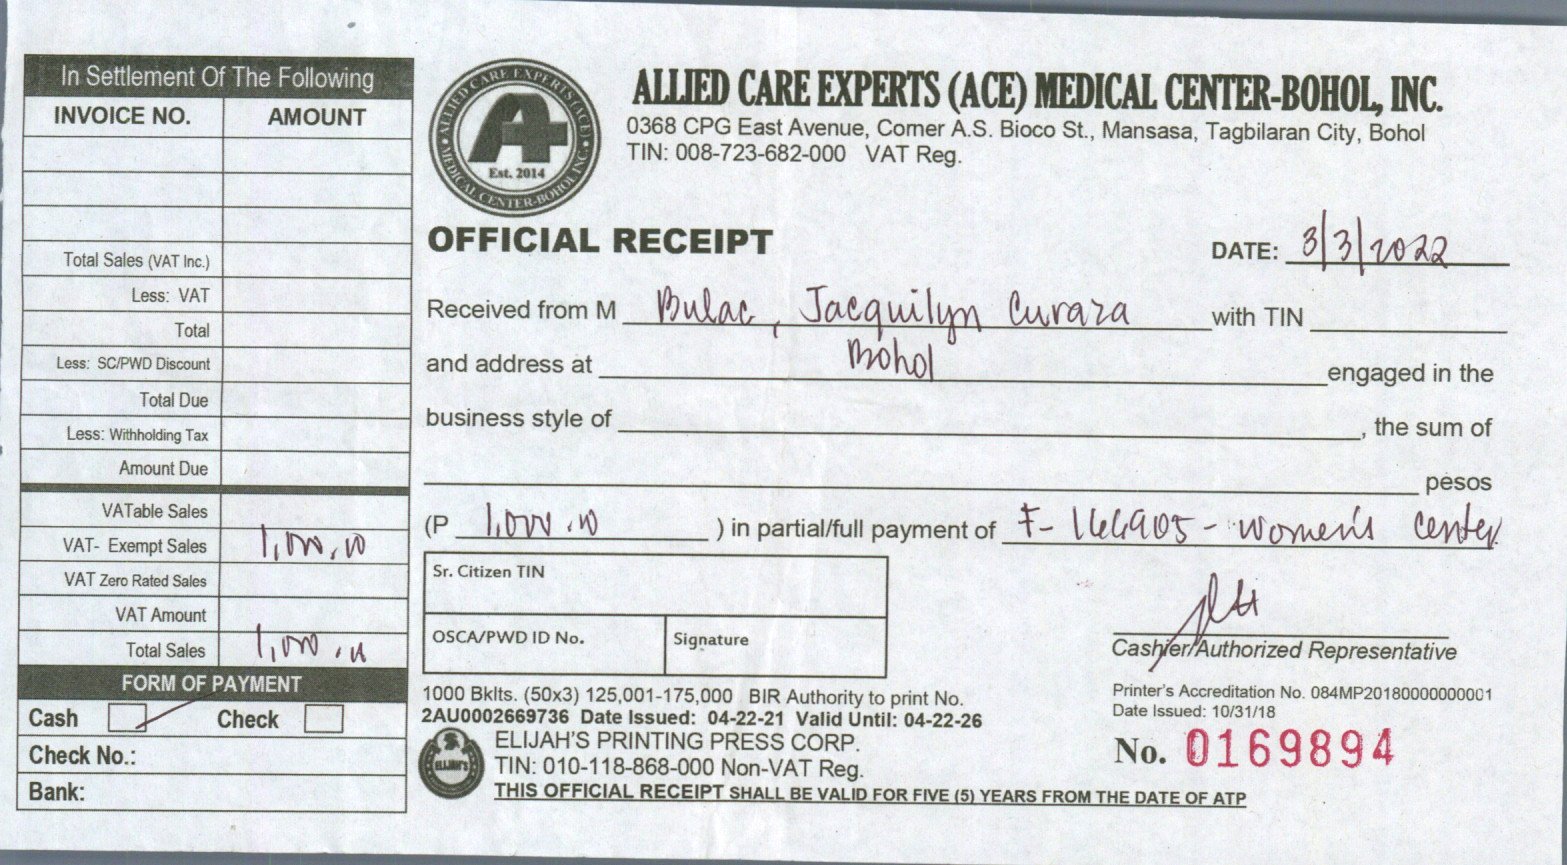 In Settlement Of The Following
INVOICE NO. AMOUNT
Total Sales (VAT Inc.)
Less: VAT
Total
Less: SC/PWD Discount
Total Due
Less: Withholding Tax
Amount Due
VATable Sales
VAT- Exempt Sales 1,000.00
VAT Zero Rated Sales
VAT Amount
Total Sales 1,000.00
FORM OF PAYMENT
Cash Check
Check No.:
Bank:
ALLIED CARE EXPERTS (ACE) MEDICAL CENTER-BOHOL INC.
A+
Est. 2014
ALLIED CARE EXPERTS (ACE) MEDICAL CENTER-BOHOL, INC.
0368 CPG East Avenue, Corner A.S. Bioco St., Mansasa, Tagbilaran City, Bohol
TIN: 008-723-682-000 VAT Reg.
OFFICIAL RECEIPT
DATE: 3/3/2022
Received from M Bulac, Jacquilyn Curaza with TIN
and address at Bohol engaged in the
business style of , the sum of
pesos
(P 1,000.00 ) in partial/full payment of F-166905 - Women's Center
Sr. Citizen TIN
OSCA/PWD ID No. Signature
Cashier/Authorized Representative
1000 Bklts. (50x3) 125,001-175,000 BIR Authority to print No.
2AU0002669736 Date Issued: 04-22-21 Valid Until: 04-22-26
ELIJAH'S
ELIJAH'S PRINTING PRESS CORP.
TIN: 010-118-868-000 Non-VAT Reg.
THIS OFFICIAL RECEIPT SHALL BE VALID FOR FIVE (5) YEARS FROM THE DATE OF ATP
Printer's Accreditation No. 084MP20180000000001
Date Issued: 10/31/18
No. 0169894